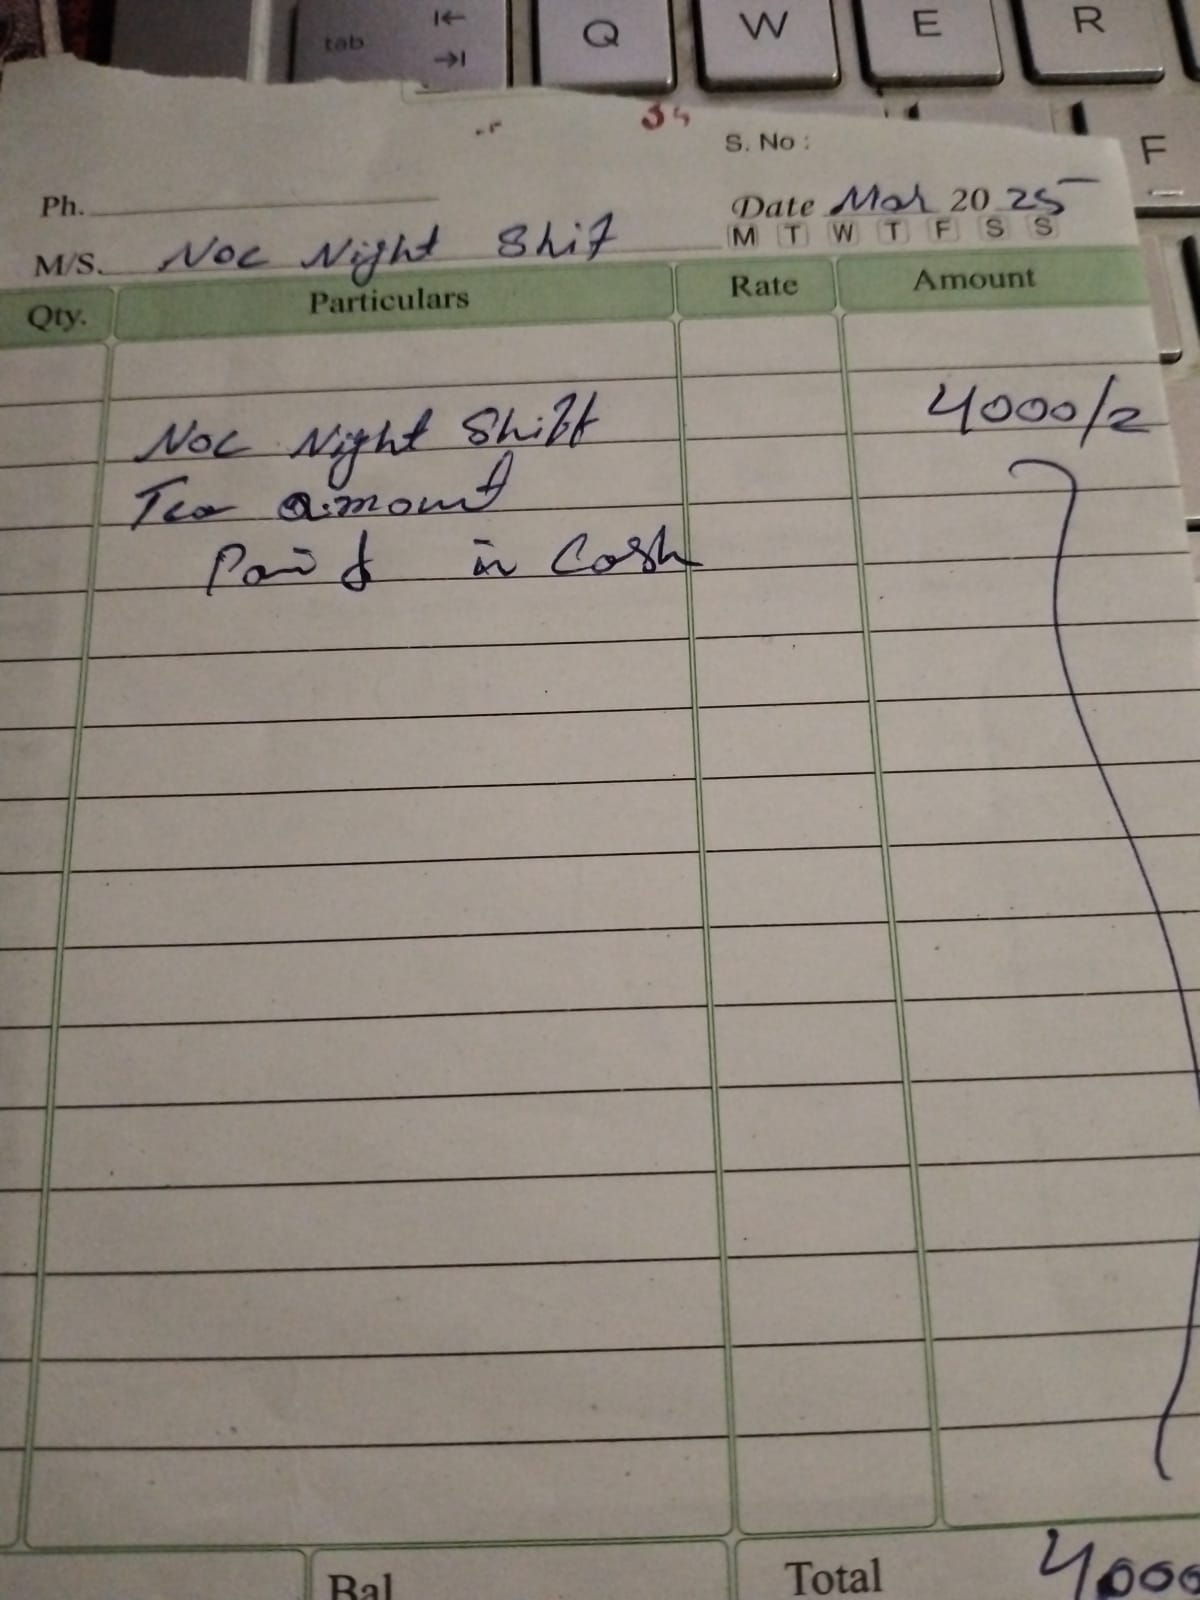 tab
Q W E R
F
34
S. No :
Ph.
Date Mar 20 25
M T W T F S S
M/S. Noc Night Shif
Qty. Particulars Rate Amount
Noc Night Shift 4000/2
Tea amount
Paid in Cash
Bal Total 4000